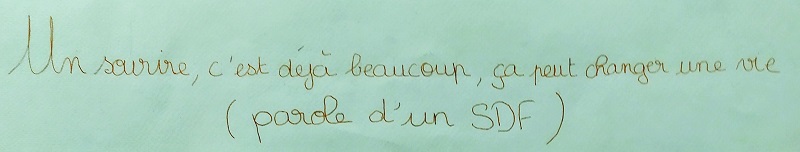 Un sourire, c'est déjà beaucoup, ça peut changer une vie
(parole d'un SDF)